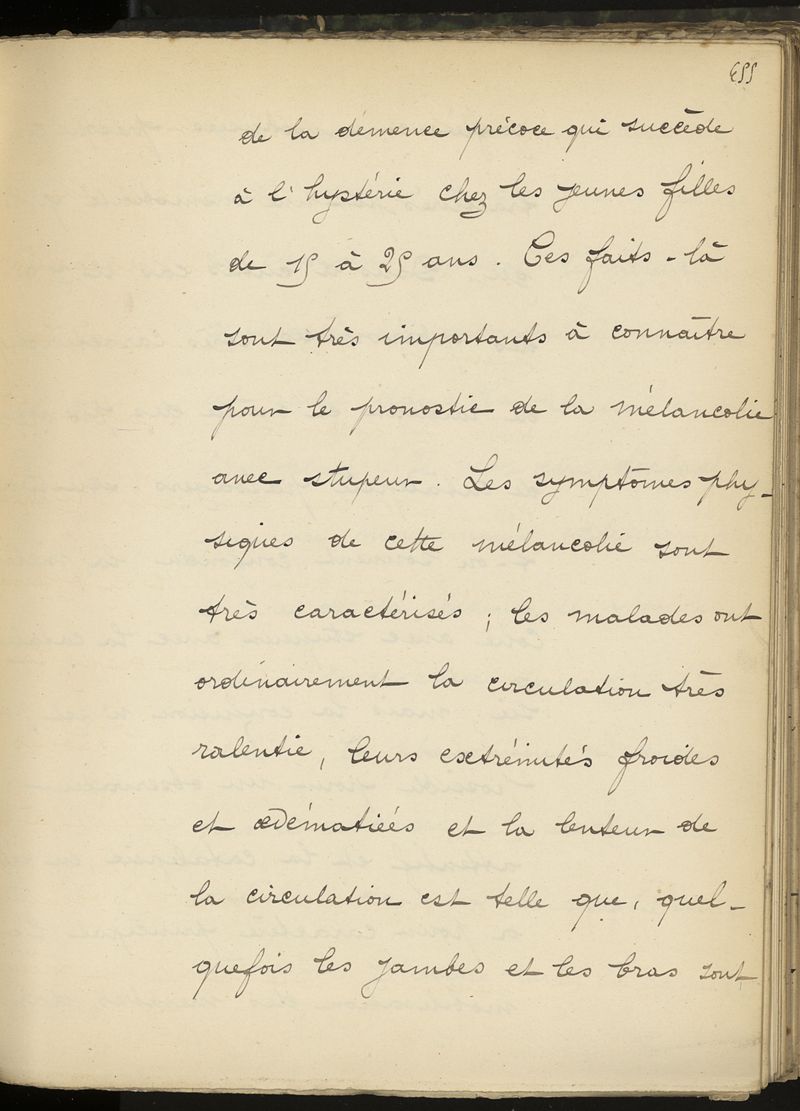 655
de la démence précoce qui succède
à l'hystérie chez les jeunes filles
de 15 à 25 ans. Ces faits-là
sont très importants à connaître
pour le pronostic de la mélancolie
avec stupeur. Les symptômes phy-
siques de cette mélancolie sont
très caractérisés ; les malades ont
ordinairement la circulation très
ralentie, leurs extrémités froides
et œdématiées et la lenteur de
la circulation est telle que, quel-
quefois les jambes et les bras sont